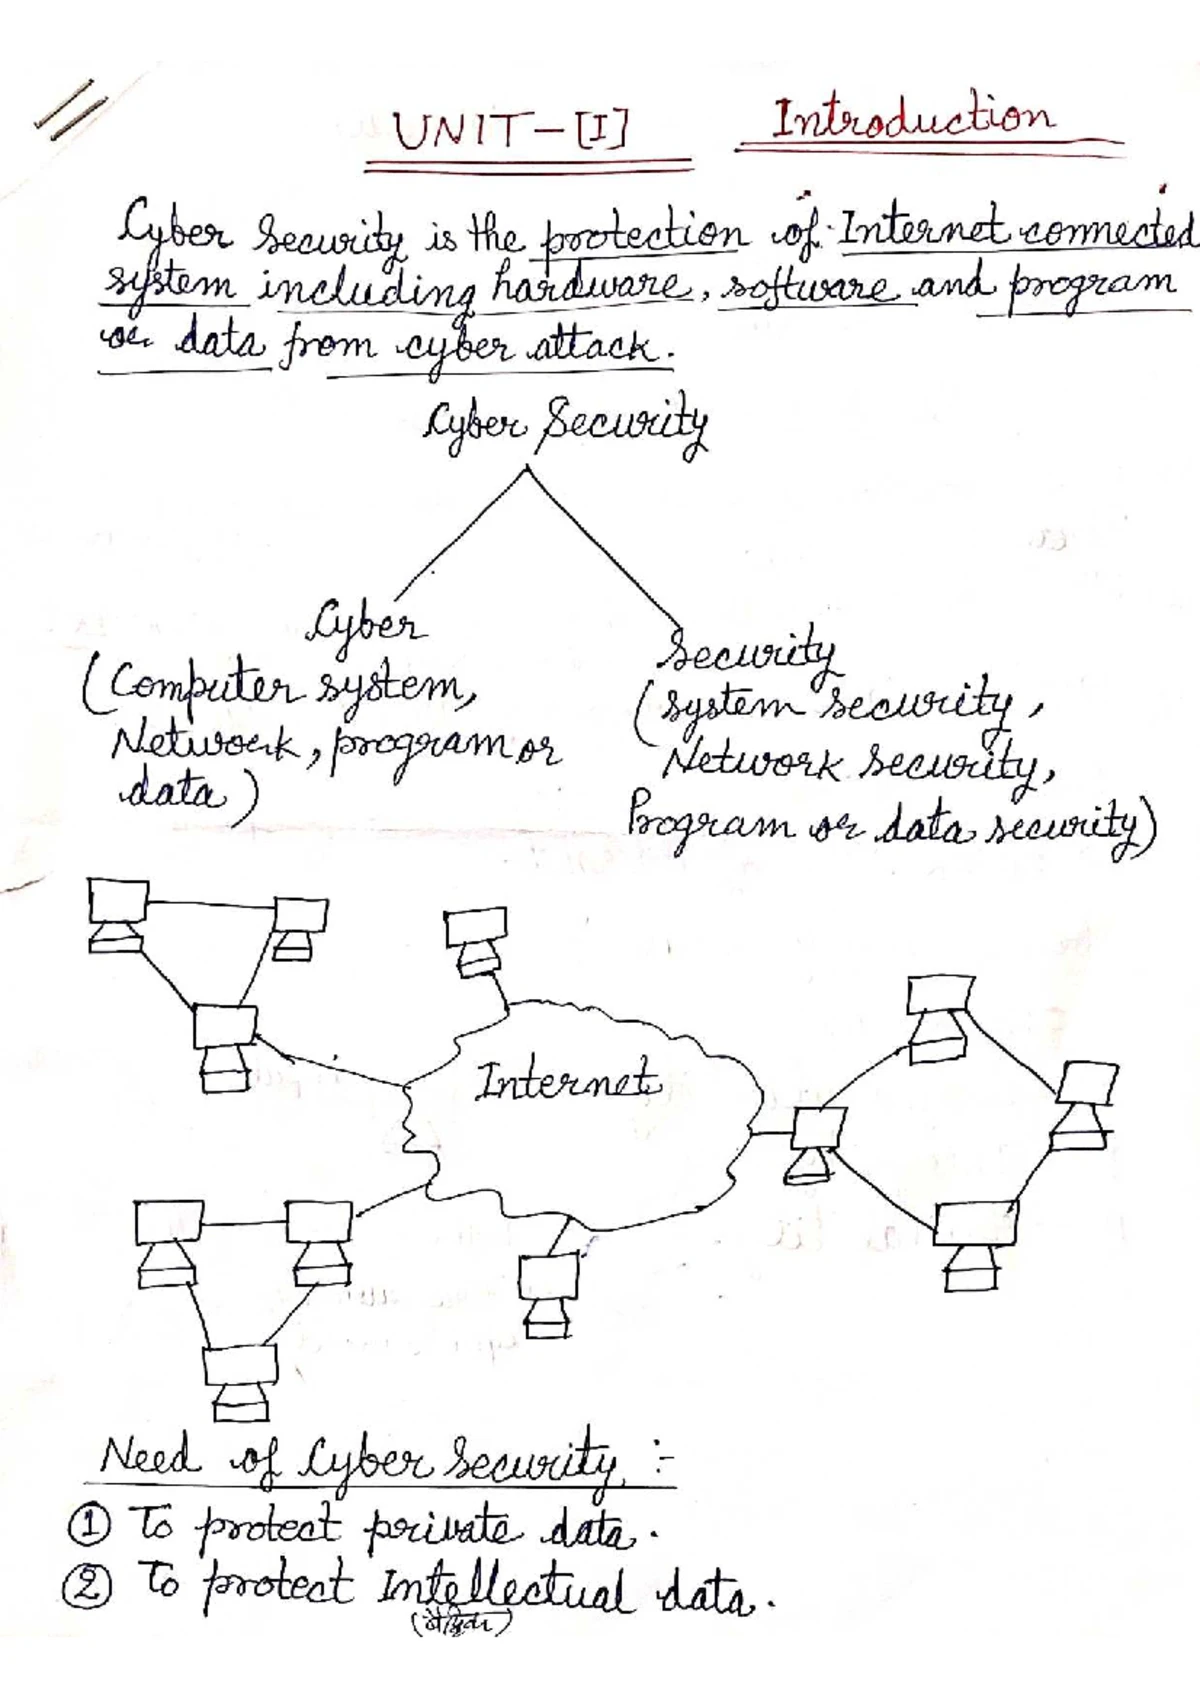 UNIT-[I] Introduction
Cyber Security is the protection of Internet connected
system including hardware, software and program
or data from cyber attack.
Cyber Security
Cyber
(Computer system,
Network, program or
data)
Security
(system security,
Network security,
Program or data security)
Internet
Need of Cyber Security :-
① To protect private data.
② To protect Intellectual data.
(बौद्धिक)